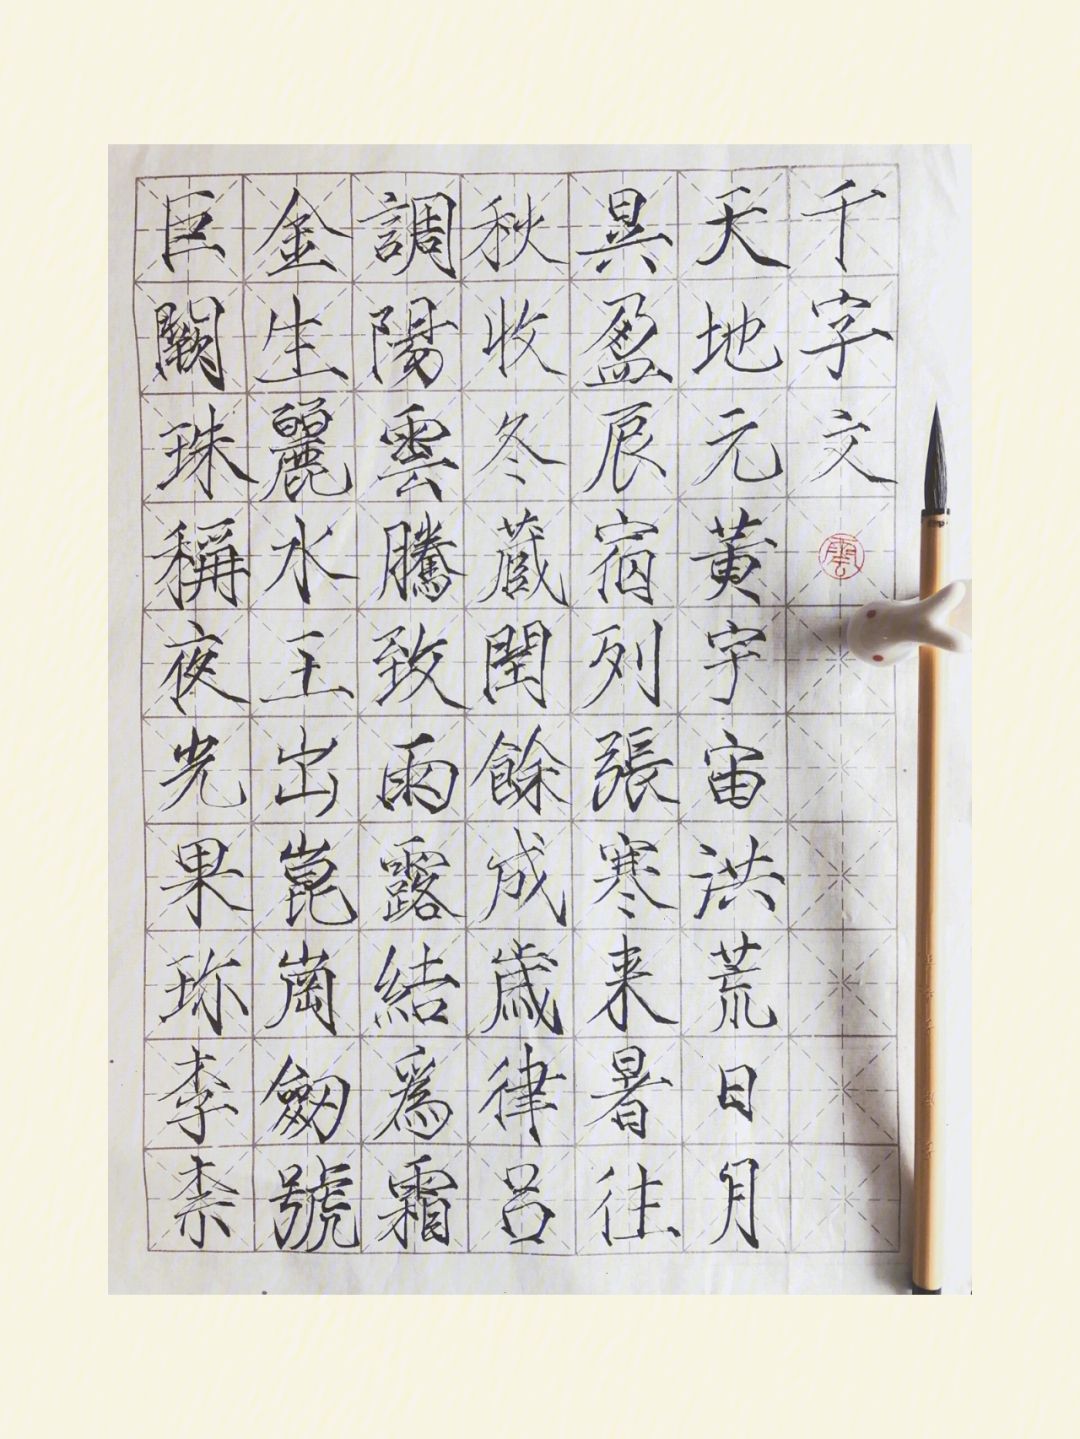 千字文
天地元黄宇宙洪荒日月
昃盈辰宿列張寒来暑往
秋收冬蔵閏餘成歳律呂
調陽雲騰致雨露結爲霜
金生麗水王出崑崗劒號
巨闕珠稱夜光果珎李柰
雲